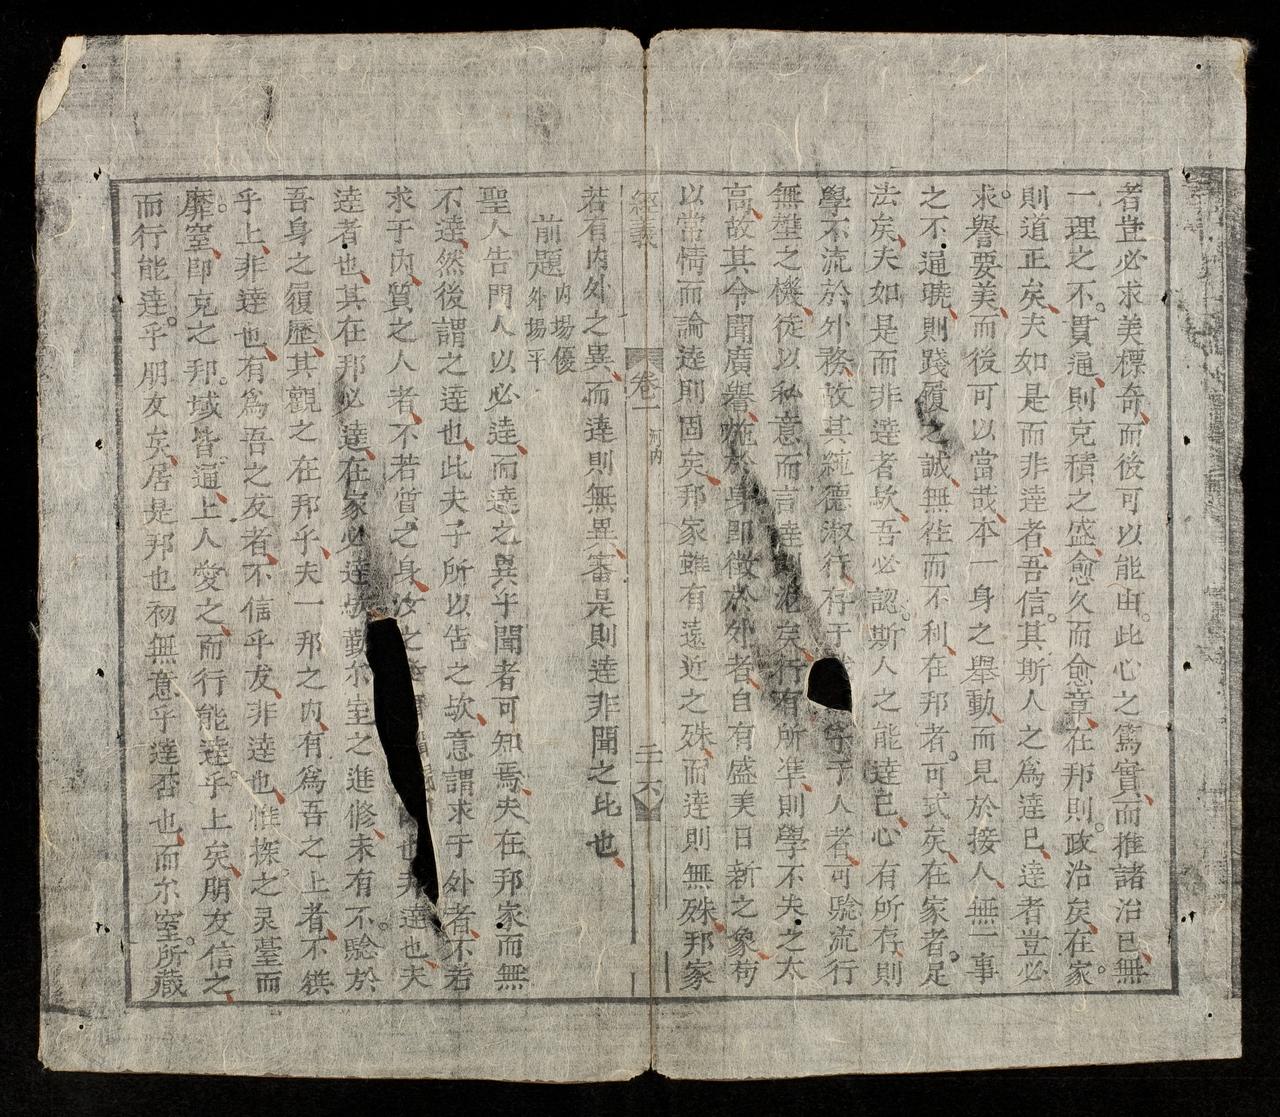 者豈必求美標奇而後可以能由此心之篤實而推諸治已無
一理之不貫通則克積之盛愈久而愈章在邦則政治矣在家
則道正矣夫如是而非逹者吾信其斯人之爲逹已逹者豈必
求譽要美而後可以當哉本一身之舉動而見於接人無一事
之不通曉則踐履之誠無徃而不利在邦者可式矣在家者足
法矣夫如是而非逹者欤吾必認斯人之能逹已心有所存則
學不流於外務故其純德淑行存于 守于人者可騐流行
無壅之機徒以私意而言逹則 矣行有所準則學不失之太
高故其令聞廣譽施於身即徵於外者自有盛美日新之象苟
以常情而論逹則固矣邦家雖有遠近之殊而逹則無殊邦家
經義 卷一 河內 二六
若有内外之異而逹則無異審是則逹非聞之比也
前題 内場優 外場平
聖人告門人以必逹而逹之異乎聞者可知焉夫在邦家而無
不逹然後謂之逹也此夫子所以告之欤意謂求于外者不若
求于内質之人者不若質之身 之 也非逹也夫
逹者也其在邦必逹在家必逹 勤尔室之進修未有不騐於
吾身之履歷其觀之在邦乎夫一邦之内有爲吾之上者不獲
乎上非逹也有爲吾之友者不信乎友非逹也惟探之灵臺而
靡窒即克之邦域皆通上人愛之而行能逹乎上矣朋友信之
而行能逹乎朋友矣居是邦也初無意乎逹否也而尔室所藏